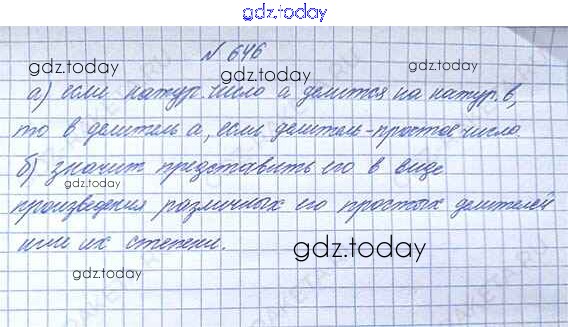 gdz.today
№ 646
gdz.today gdz.today
а) если натур. число а делится на натур. в,
то в делитель а, если делитель - простое число.
б) значит представить его в виде
gdz.today
произведения различных его простых делителей
или их степени.
gdz.today
gdz.today